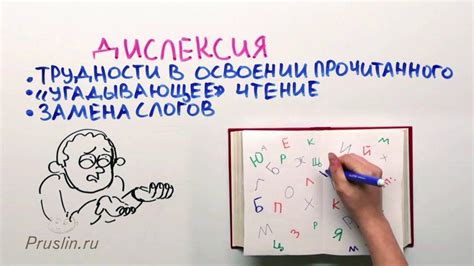 ДИСЛЕКСИЯ
• ТРУДНОСТИ В ОСВОЕНИИ ПРОЧИТАННОГО
• «УГАДЫВАЮЩЕЕ» ЧТЕНИЕ
• ЗАМЕНА СЛОГОВ
Ю А Е К И Й М
Р Ж Щ
Л О Л И
Б П Х Г Б
М Ц З Р Я М
Pruslin.ru